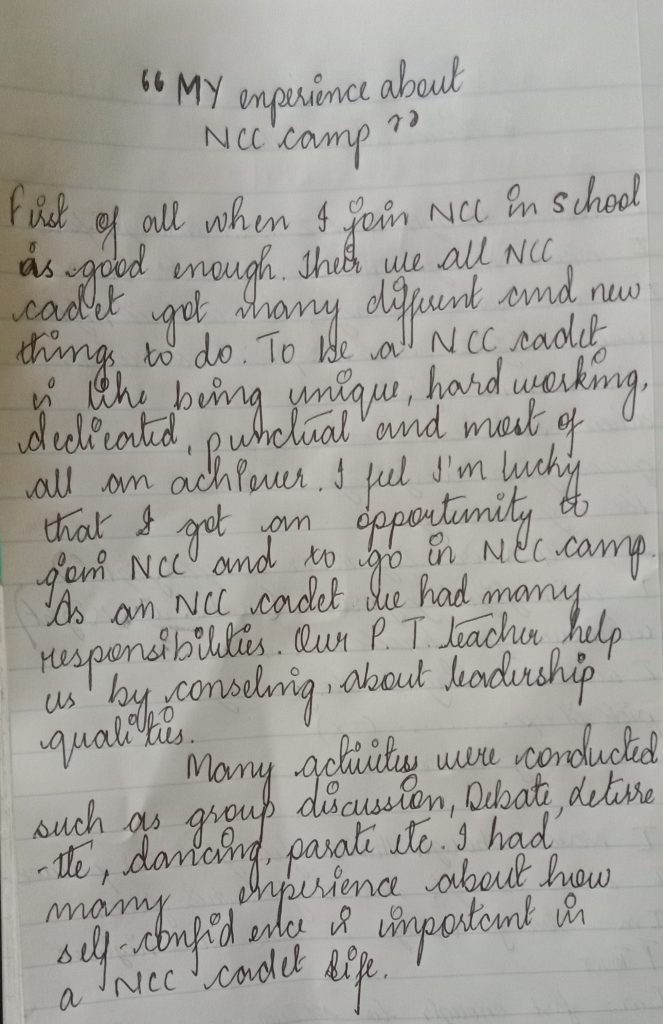 “ MY enperience about
NCC camp ”
First of all when I join NCC in school
is good enough. Then we all NCC
cadet got many different and new
things to do. To be a NCC cadet
is like being unique, hard working,
dedicated, punctual and most of
all an achiever. I feel I'm lucky
that I got an opportunity to
join NCC and to go in NCC camp.
As an NCC cadet we had many
responsibilities. Our P. T. teacher help
us by conseling, about leadership
qualities.
Many activities were conducted
such as group discussion, Debate,
, dancing, etc. I had
many enperience about how
self-confidence is important in
a NCC cadet life.